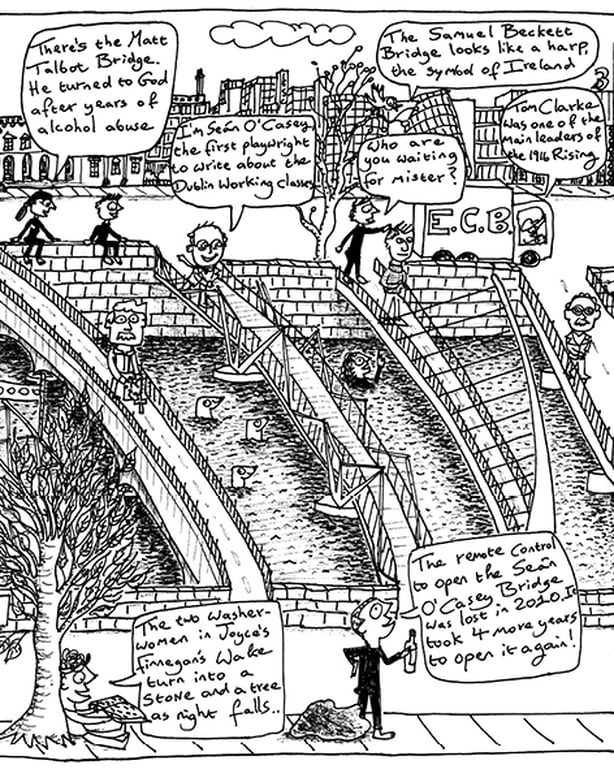 There's the Matt
Talbot Bridge.
He turned to God
after years of
alcohol abuse
The Samuel Beckett
Bridge looks like a harp,
the symbol of Ireland
I'm Seán O'Casey,
the first playwright
to write about the
Dublin Working Classes
Who are
you waiting
for Mister?
Tom Clarke
was one of the
main leaders of
the 1916 Rising.
E.C.B.
The remote control
to open the Seán
O'Casey Bridge
was lost in 2010. It
took 4 more years
to open it again!
The two washer-
women in Joyce's
Finnegan's Wake
turn into a
Stone and a tree
as night falls..